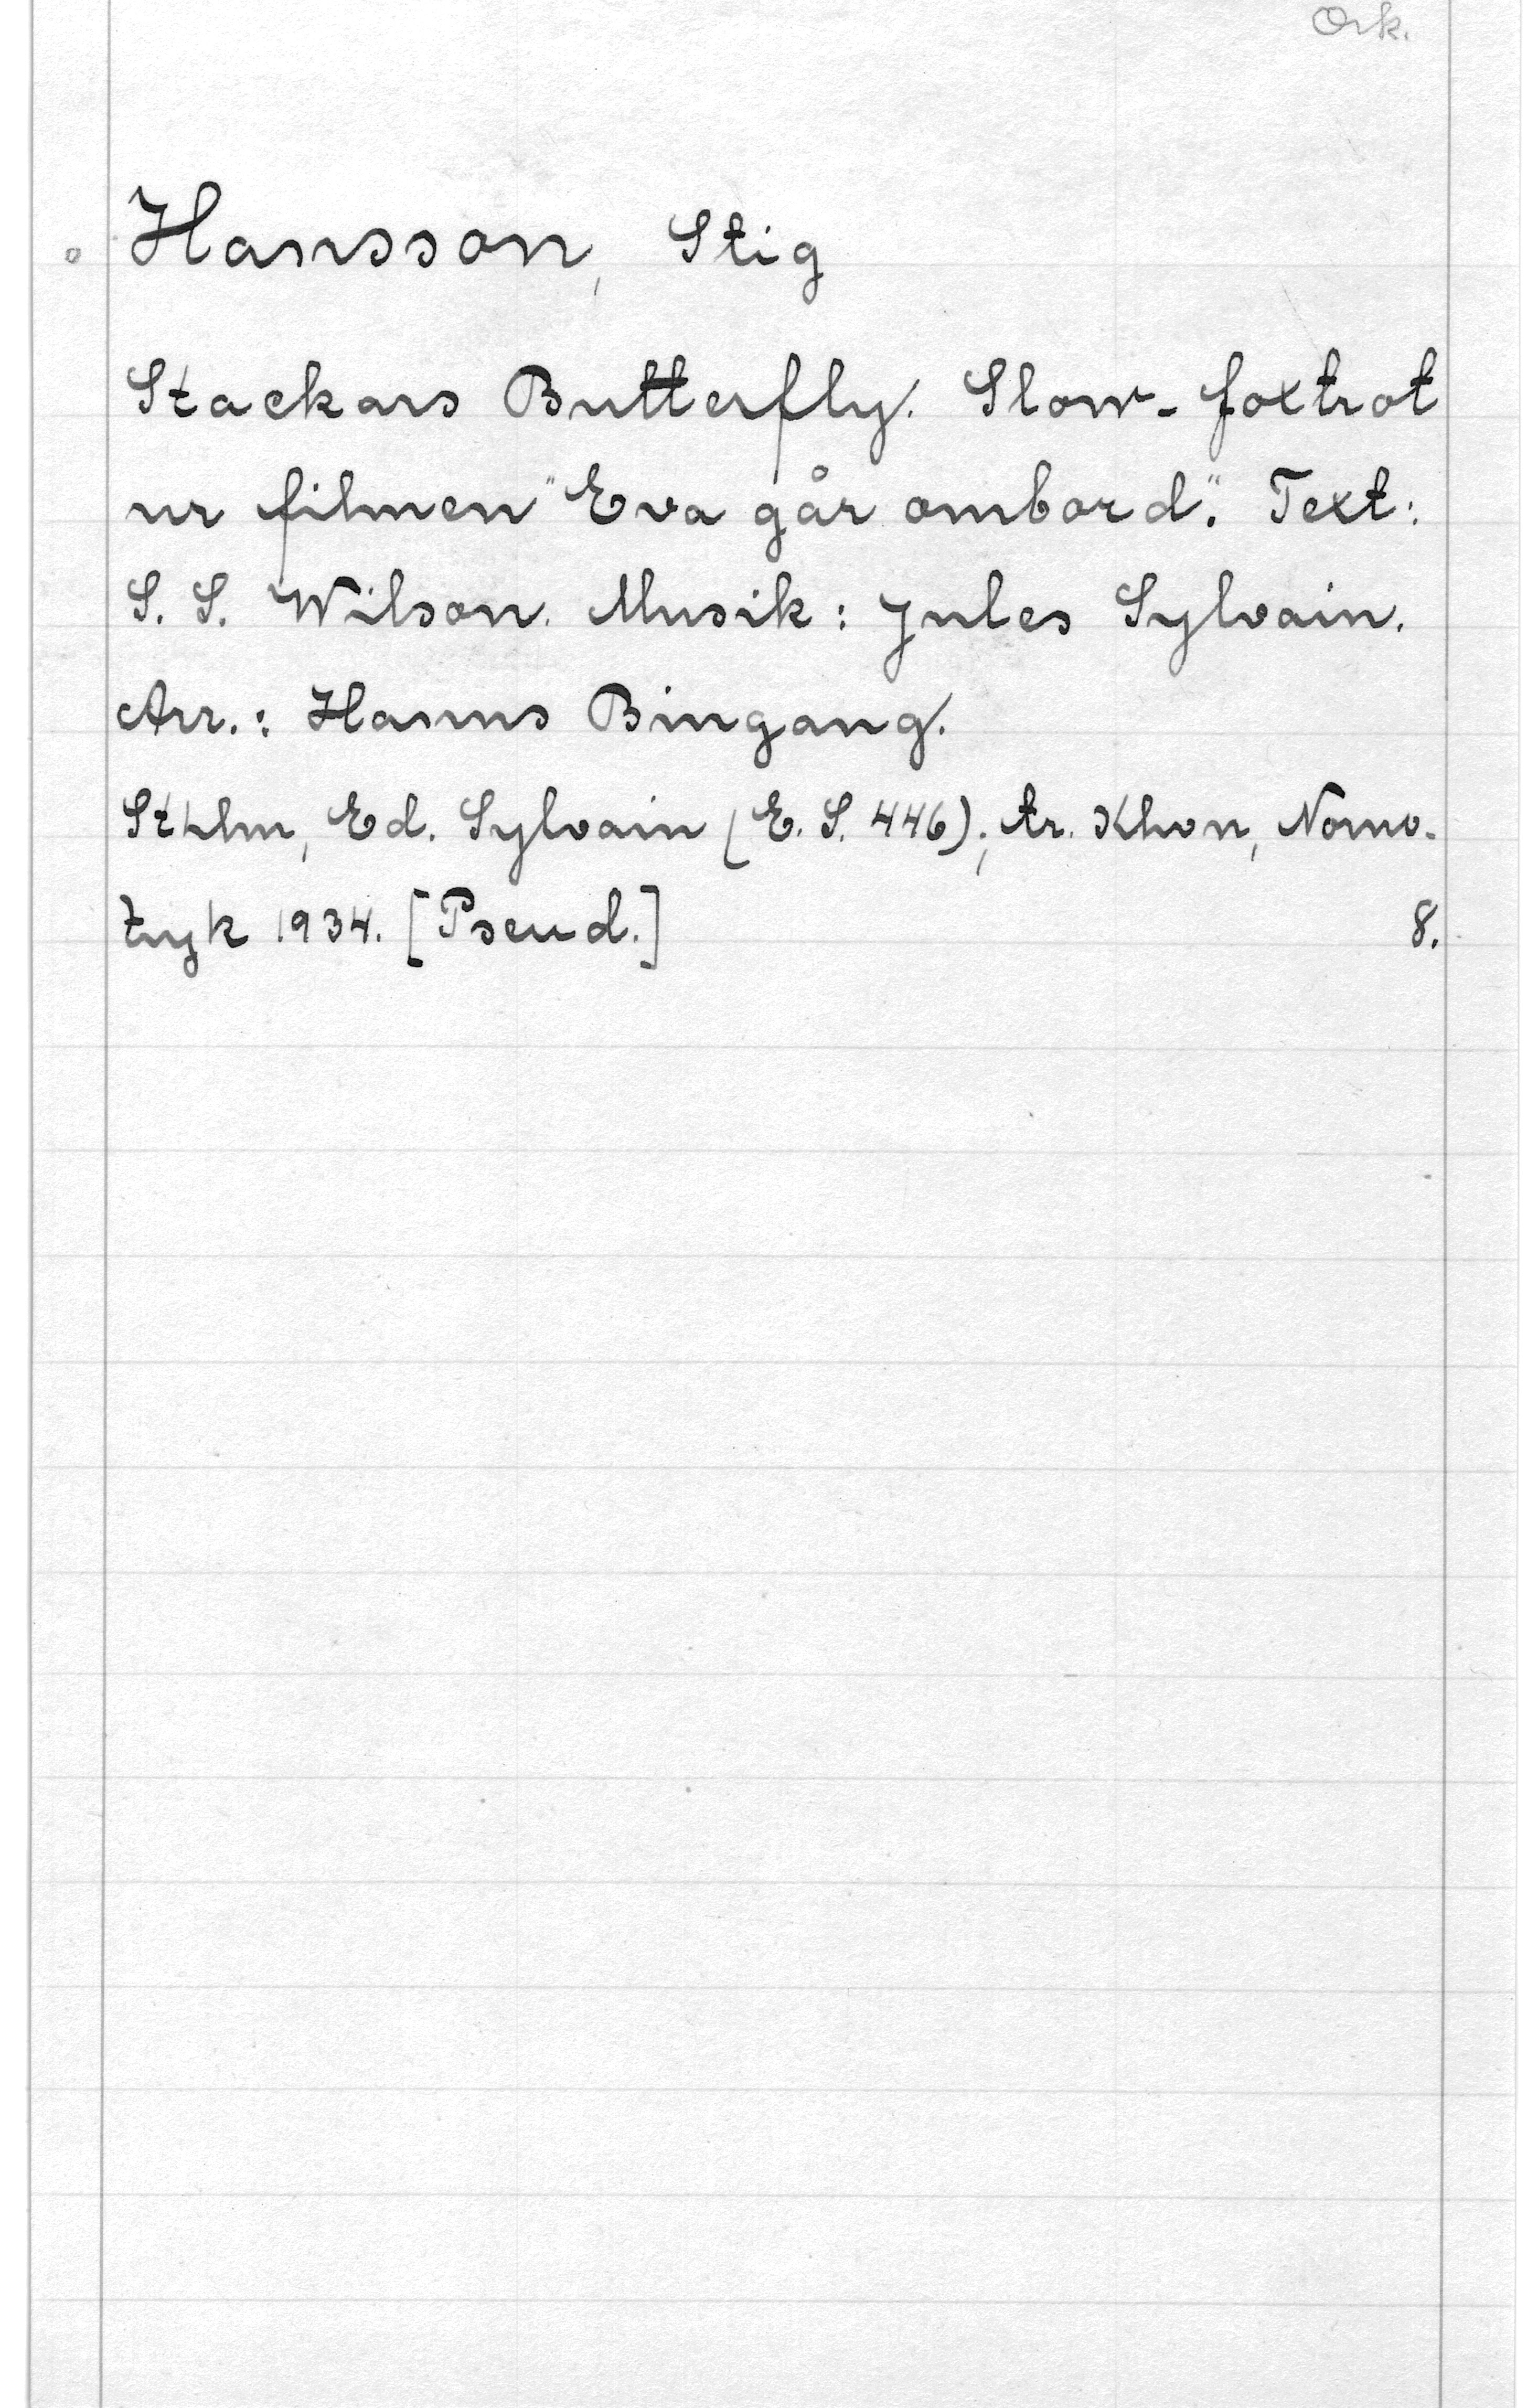 Ork.
Hansson, Stig
Stackars Butterfly. Slow-foxtrot
ur filmen "Eva går ombord". Text:
S. S. Wilson. Musik: Jules Sylvain.
Arr.: Hanns Bingang.
Sthlm, Ed. Sylvain (E. S. 446); tr. Khvn, Nomo-
tryk 1934. [Pseud.] 8.